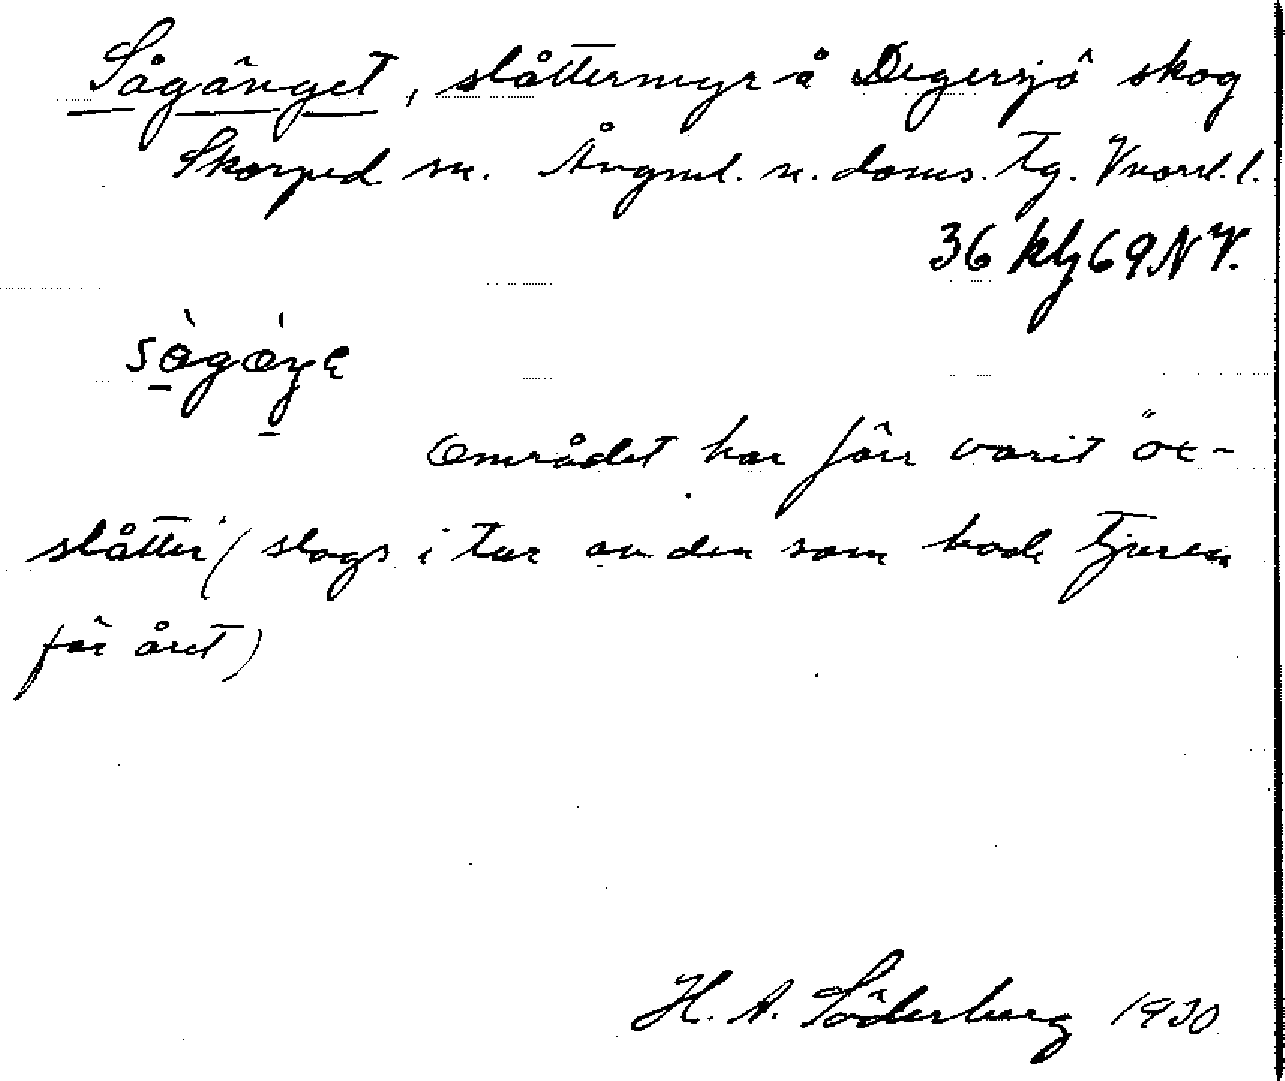 Sågänget, slåttermyr å Degersjö skog
Skorped sn. Ångml. n. doms. tg. Vnorrl. l.
36 klg 69 NV.
området har förr varit "ox-
slåtter" (slogs i tur av den som hade tjuren
för året)
H. A. Söderberg 1930